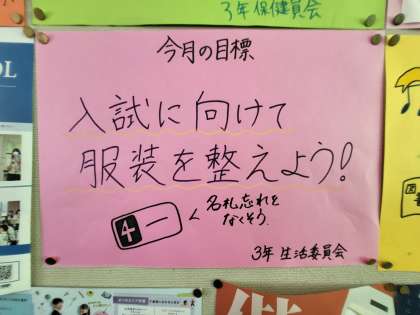 3年保健員会
今月の目標
入試に向けて
服装を整えよう!
4一
名札忘れを
なくそう.
3年 生活委員会
OL
図